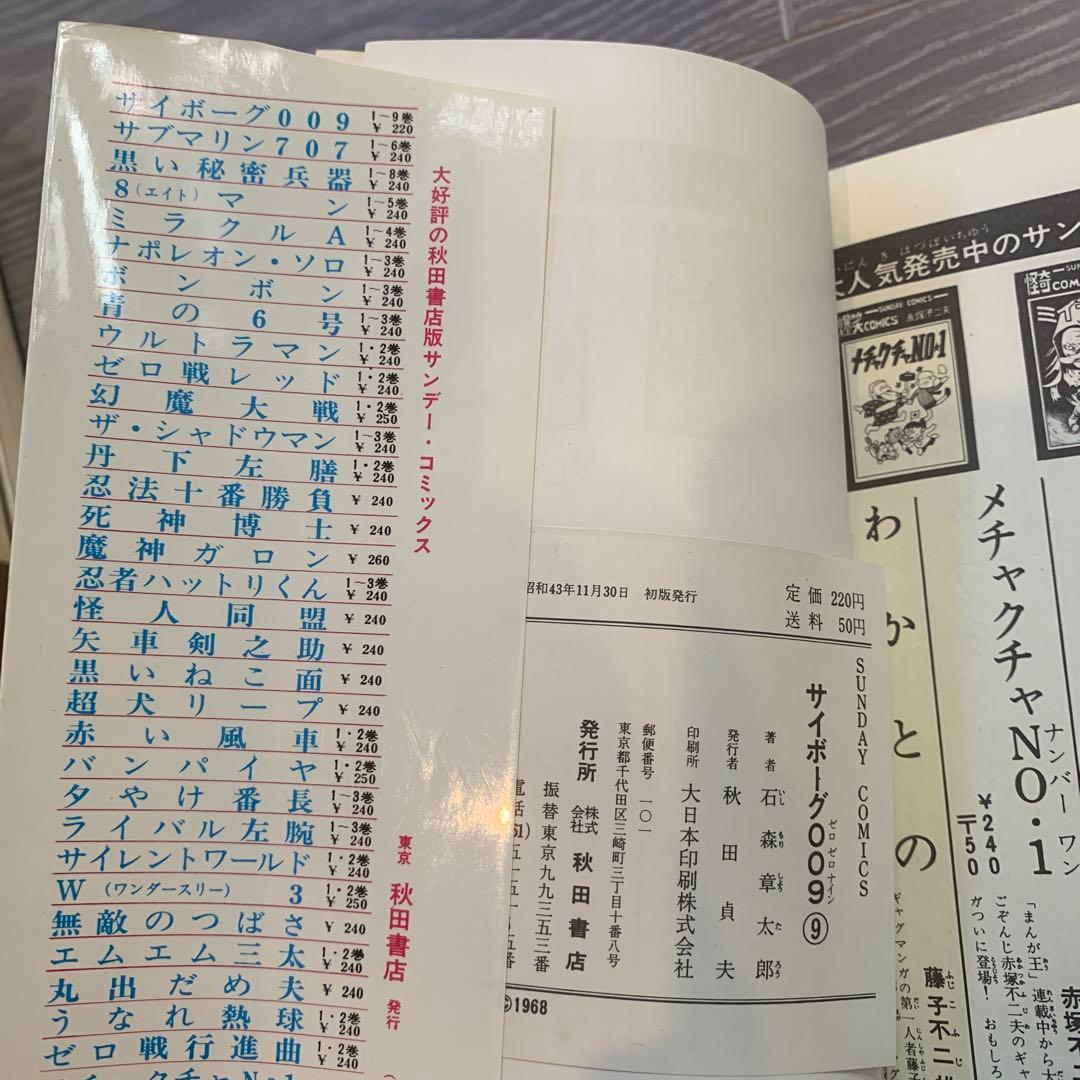 サイボーグ009 1〜9巻 ¥220
サブマリン707 1〜6巻 ¥240
黒い秘密兵器 1〜8巻 ¥240
8(エイト)マン 1〜5巻 ¥240
ミラクルA 1〜4巻 ¥240
ナポレオン・ソロ 1〜3巻 ¥240
ボンボン 1〜3巻 ¥240
青の6号 1〜3巻 ¥240
ウルトラマン 1・2巻 ¥240
ゼロ戦レッド 1・2巻 ¥240
幻魔大戦 1・2巻 ¥250
ザ・シャドウマン 1〜3巻 ¥240
丹下左膳 1・2巻 ¥240
忍法十番勝負 ¥240
死神博士 ¥240
魔神ガロン ¥260
忍者ハットリくん 1〜3巻 ¥240
怪人同盟 ¥240
矢車剣之助 ¥240
黒いねこ面 ¥240
超犬リープ ¥240
赤い風車 1・2巻 ¥240
バンパイヤ 1・2巻 ¥250
夕やけ番長 1〜3巻 ¥240
ライバル左腕 1〜3巻 ¥240
サイレントワールド 1・2巻 ¥240
W(ワンダースリー)3 1・2巻 ¥250
無敵のつばさ ¥240
エムエム三太 1・2巻 ¥240
丸出だめ夫 ¥240
うなれ熱球 1・2巻 ¥240
ゼロ戦行進曲 1・2巻 ¥240
大好評の秋田書店版サンデー・コミックス
東京 秋田書店 発行
昭和43年11月30日 初版発行
定価 220円
送料 50円
SUNDAY COMICS
サイボーグ009⑨
ゼロゼロナイン
著者 石森章太郎
いし もり しょう た ろう
発行者 秋田貞夫
印刷所 大日本印刷株式会社
郵便番号 一〇一
東京都千代田区三崎町三丁目十番八号
発行所 株式会社 秋田書店
振替東京九九三五三番
©1968
人気発売中のサン
にんきはつばいちゅう
SUNDAY COMICS
爆笑COMICS 赤塚不二夫
メチャクチャNO・1
メチャクチャNO・1
ナンバーワン
¥240
〒50
「まんが王」連載中から大
ごぞんじ赤塚不二夫のギャ
がついに登場! おもしろ
赤塚不
わかとの
ギャグマンガの第一人者藤子
藤子不二
ふじこふじ